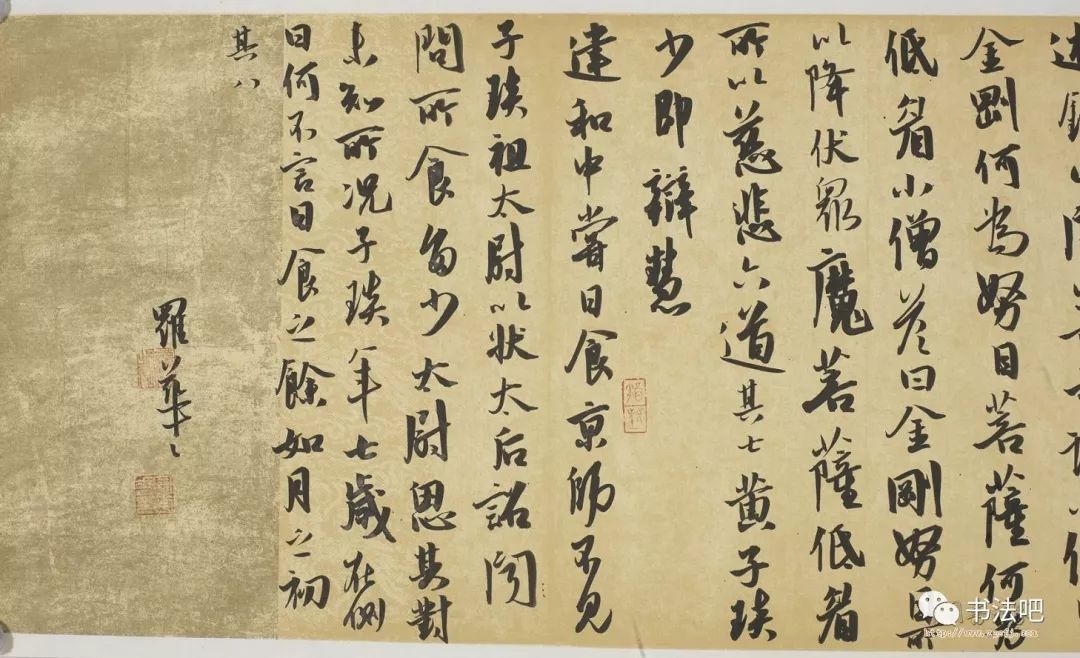 金剛何為努目菩薩何為
低眉小僧答曰金剛努目所
以降伏眾魔菩薩低眉
所以慈悲六道 其七 黄子琰
少即辯慧
建和中嘗日食京師不見
子琰祖太尉以狀太后詔問
問所食多少太尉思其對
未知所況子琰年七歲在側
曰何不言日食之餘如月之初
其八
羅
书法吧